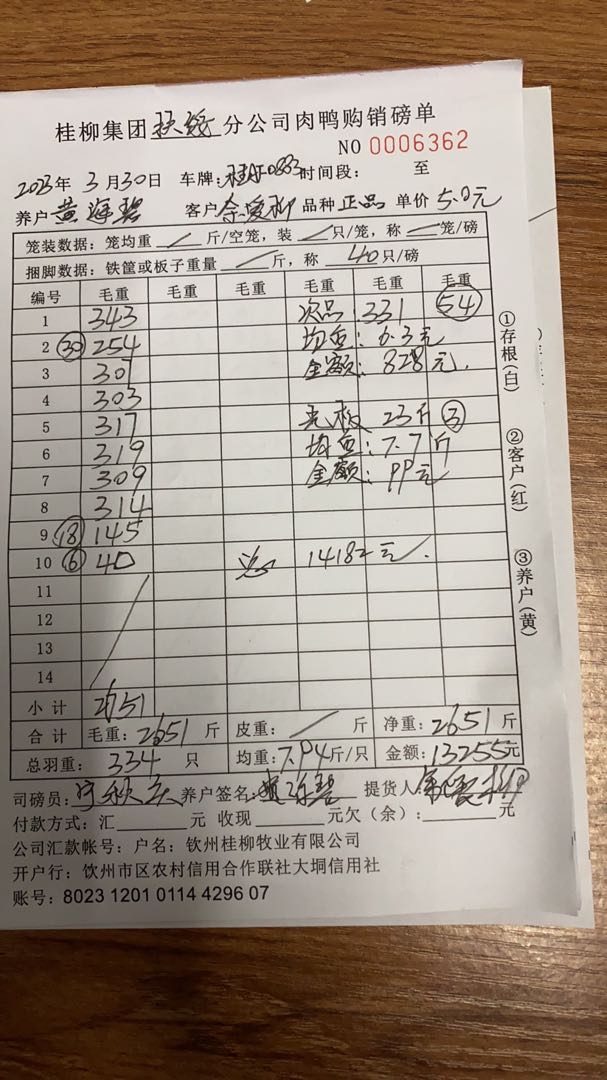 桂柳集团 分公司肉鸭购销磅单
NO 0006362
2023年 3月30日 车牌: 时间段: 至
养户 黄海碧 客户 余爱柳 品种 正品 单价 5.0元
笼装数据: 笼均重 / 斤/空笼, 装 / 只/笼, 称 / 笼/磅
捆脚数据: 铁筐或板子重量 / 斤, 称 40 只/磅
编号 毛重 毛重 毛重 毛重 毛重 毛重
1 343 次品: 331 54
2 30 254 均重: 6.3元
3 301 金额: 828元.
4 303
5 317 23斤 3
6 319 均重: 7.7斤
7 309 金额: 99元
8 314
9 18 145
10 6 40 总 14182元.
11
12
13
14
小计 2651
合计 毛重: 2651 斤 皮重: / 斤 净重: 2651 斤
总羽重: 334 只 均重: 7.94斤/只 金额: 13255元
司磅员: 养户签名: 黄海碧 提货人: 余爱柳
付款方式: 汇 元 收现 元欠(余): 元
公司汇款帐号: 户名: 钦州桂柳牧业有限公司
开户行: 钦州市区农村信用合作联社大垌信用社
账号: 8023 1201 0114 4296 07
①存根(白)
②客户(红)
③养户(黄)